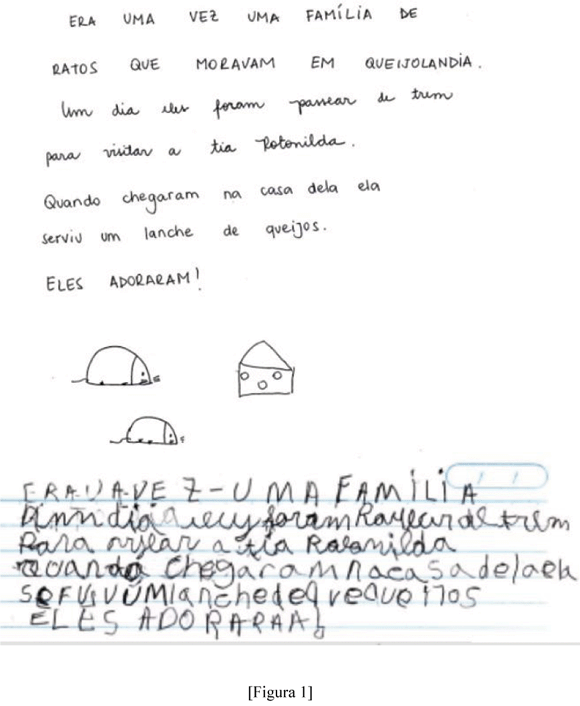 ERA UMA VEZ UMA FAMÍLIA DE
RATOS QUE MORAVAM EM QUEIJOLANDIA.
Um dia eles foram passear de trem
para visitar a tia Ratonilda.
Quando chegaram na casa dela ela
serviu um lanche de queijos.
ELES ADORARAM!
ERA UA VEZ-UMA FAMÍLIA
dia foram de trem
Para a tia Ratonilda
Quando chegaram na casa dela ela
UM lanche de queijos
ELES ADORARAA!
[Figura 1]